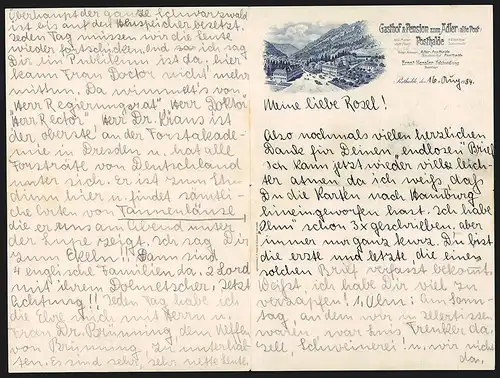 Gasthof & Pension zum Adler (alte Post)
Posthalde
16. Aug. 34.
Meine liebe Rosel!
Also nochmals vielen herzlichen
Dank für Deinen "endlosen" Brief
Ich kann jetzt wieder viel leich-
ter atmen, da ich weiß, daß
Du die Karten nach Hamburg
hineingeworfen hast. Ich habe
schon 3x geschrieben, aber
immer nur ganz kurz. Du bist
die erste und letzte die einen
solchen Brief verfasst bekommt.
Weißt, ich habe Dir viel zu
verzapfen! 1. Ulm: Am Sonn-
tag, an dem wir in
waren war Luis Trenker da,
gelt, Schweinerei! u. wir nicht
da.
Oberhaupt der ganze Schwarzwald
ist bis auf den besetzt.
Jeden Tag müssen wir die Leute
wieder fortschicken, und so ich sag
Dir ein Publikum ist da. hier
kann Frau Doctor nicht mehr
misten. Da wimmelt's von
"Herr Regierungsrat" "Herr Doktor"
"Herr Rector" Herr Dr. ist
der oberste an der Forstakade-
mie in Dresden u. hat alle
Forsträte von Deutschland
unter sich. Er ist zum Stu-
dium hier u. findet sämtli-
che Arten von Tannenläuse
die er uns am Abend unter
der Lupe zeigt. Ich sag Dir
zum Ekeln!! Dann sind
4 englische Familien da, 2 Lord
mit ihrem Dolmetscher. Jetzt
Achtung!! Jeden Tag habe ich
die Ehre mich mit Herrn u.
Frau Dr. Brünning dem Neffen
von Brünning, zu unterhal-
ten. Es sind sehr, sehr nette Leute